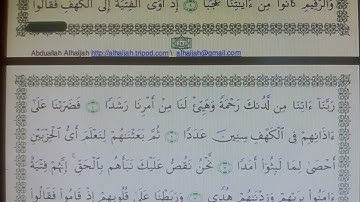 وَالرَّقِيمِ كَانُوا۟ مِنْ ءَايَـٰتِنَا عَجَبًا ۝ إِذْ أَوَى ٱلْفِتْيَةُ إِلَى ٱلْكَهْفِ فَقَالُوا۟
Abduallah Alhaijah http://alhaijah.tripod.com \ alhaijah@gmail.com
رَبَّنَآ ءَاتِنَا مِن لَّدُنكَ رَحْمَةً وَهَيِّئْ لَنَا مِنْ أَمْرِنَا رَشَدًا ۝ فَضَرَبْنَا عَلَىٰٓ
ءَاذَانِهِمْ فِى ٱلْكَهْفِ سِنِينَ عَدَدًا ۝ ثُمَّ بَعَثْنَـٰهُمْ لِنَعْلَمَ أَىُّ ٱلْحِزْبَيْنِ
أَحْصَىٰ لِمَا لَبِثُوٓا۟ أَمَدًا ۝ نَّحْنُ نَقُصُّ عَلَيْكَ نَبَأَهُم بِٱلْحَقِّ ۚ إِنَّهُمْ فِتْيَةٌ
ءَامَنُوا۟ بِرَبِّهِمْ وَزِدْنَـٰهُمْ هُدًى ۝ وَرَبَطْنَا عَلَىٰ قُلُوبِهِمْ إِذْ قَامُوا۟ فَقَالُوا۟